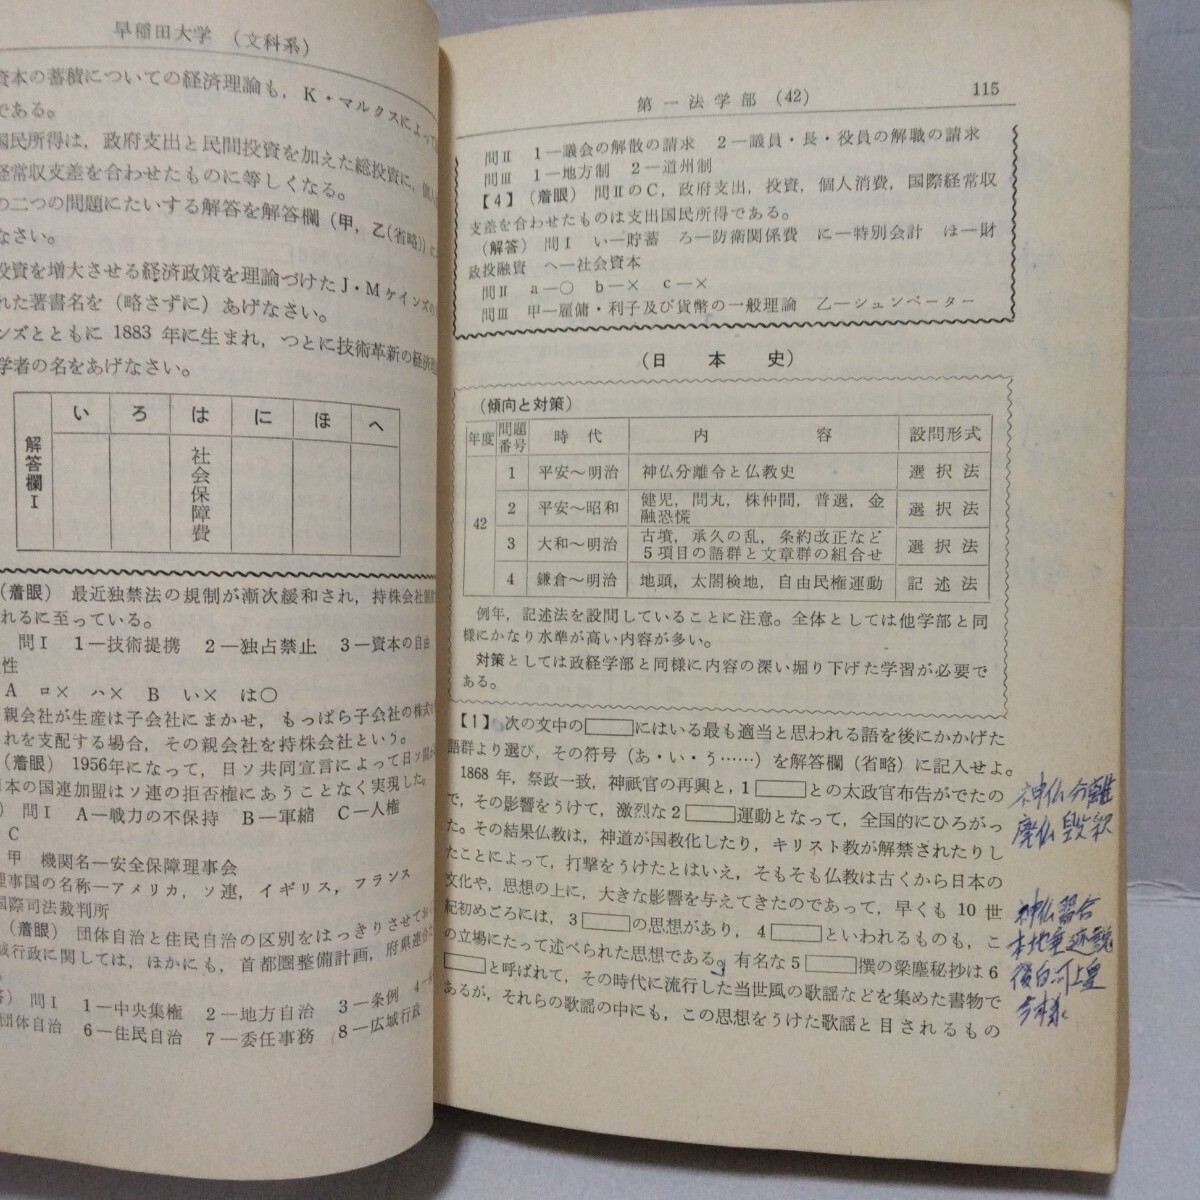 早稲田大学 （文科系）
資本の蓄積についての経済理論も，K・マルクスによって
である。
国民所得は，政府支出と民間投資を加えた総投資に，個
経常収支差を合わせたものに等しくなる。
の二つの問題にたいする解答を解答欄（甲，乙（省略））に
なさい。
投資を増大させる経済政策を理論づけたJ・Mケインズの
れた著書名を（略さずに）あげなさい。
ンズとともに 1883 年に生まれ，つとに技術革新の経済理
学者の名をあげなさい。
解答欄Ⅰ い ろ は に ほ へ
社会保障費
（着眼） 最近独禁法の規制が漸次緩和され，持株会社
れるに至っている。
問Ⅰ 1―技術提携 2―独占禁止 3―資本の自由
性
A ロ× ハ× B い× は○
親会社が生産は子会社にまかせ，もっぱら子会社の株式
れを支配する場合，その親会社を持株会社という。
（着眼） 1956年になって，日ソ共同宣言によって日ソ
日本の国連加盟はソ連の拒否権にあうことなく実現した。
）問Ⅰ A―戦力の不保持 B―軍縮 C―人権
C
甲 機関名―安全保障理事会
理事国の名称―アメリカ，ソ連，イギリス，フランス
国際司法裁判所
（着眼） 団体自治と住民自治の区別をはっきりさせてお
域行政に関しては，ほかにも，首都圏整備計画，府県連合
。
答）問Ⅰ 1―中央集権 2―地方自治 3―条例 4―
団体自治 6―住民自治 7―委任事務 8―広域行政
第一法学部（42） 115
問Ⅱ 1―議会の解散の請求 2―議員・長・役員の解職の請求
問Ⅲ 1―地方制 2―道州制
【4】（着眼） 問ⅡのC，政府支出，投資，個人消費，国際経常収
支差を合わせたものは支出国民所得である。
（解答）問Ⅰ い―貯蓄 ろ―防衛関係費 に―特別会計 ほ―財
政投融資 へ―社会資本
問Ⅱ a―○ b―× c―×
問Ⅲ 甲―雇傭・利子及び貨幣の一般理論 乙―シュンペーター
（日本史）
（傾向と対策）
年度 問題番号 時代 内容 設問形式
42
1 平安～明治 神仏分離令と仏教史 選択法
2 平安～昭和 健児，問丸，株仲間，普選，金融恐慌 選択法
3 大和～明治 古墳，承久の乱，条約改正など5項目の語群と文章群の組合せ 選択法
4 鎌倉～明治 地頭，太閤検地，自由民権運動 記述法
例年，記述法を設問していることに注意。全体としては他学部と同
様にかなり水準が高い内容が多い。
対策としては政経学部と同様に内容の深い堀り下げた学習が必要で
ある。
【1】 次の文中の□にはいる最も適当と思われる語を後にかかげた
語群より選び，その符号（あ・い・う……）を解答欄（省略）に記入せよ。
1868 年，祭政一致，神祇官の再興と，1□との太政官布告がでたの
で，その影響をうけて，激烈な 2□運動となって，全国的にひろがっ
た。その結果仏教は，神道が国教化したり，キリスト教が解禁されたりし
たことによって，打撃をうけたとはいえ，そもそも仏教は古くから日本の
文化や，思想の上に，大きな影響を与えてきたのであって，早くも 10 世
紀初めごろには，3□の思想があり，4□といわれるものも，こ
の立場にたって述べられた思想である。有名な 5□撰の梁塵秘抄は 6
□と呼ばれて，その時代に流行した当世風の歌謡などを集めた書物で
あるが，それらの歌謡の中にも，この思想をうけた歌謡と目されるもの
神仏分離
廃仏毀釈
神仏習合
本地垂迹説
後白河上皇
今様